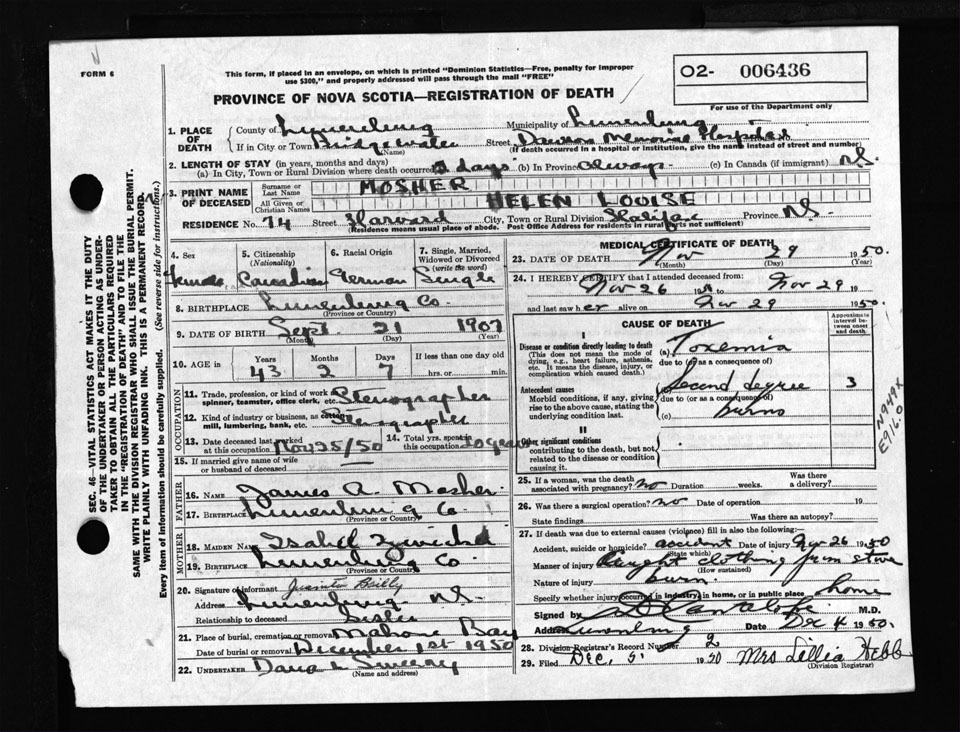 FORM 6
This form, if placed in an envelope, on which is printed "Dominion Statistics—Free, penalty for improper
use $300," and properly addressed will pass through the mail "FREE"
O2- 006436
For use of the Department only
PROVINCE OF NOVA SCOTIA—REGISTRATION OF DEATH
1. PLACE OF DEATH { County of Lunenburg Municipality of Lunenburg
If in City or Town Bridgewater (Name) Street Dawson Memorial Hospital
(If death occurred in a hospital or institution, give the name instead of street and number)
2. LENGTH OF STAY (in years, months and days)
(a) In City, Town or Rural Division where death occurred days (b) In Province always (c) In Canada (if immigrant)
3. PRINT NAME OF DECEASED { Surname or Last Name MOSHER
All Given or Christian Names HELEN LOUISE
RESIDENCE No. 74 Street Harvard City, Town or Rural Division Halifax Province N.S.
(Residence means usual place of abode. Post Office Address for residents in rural parts not sufficient)
SEC. 46—VITAL STATISTICS ACT MAKES IT THE DUTY
OF THE UNDERTAKER OR PERSON ACTING AS UNDER-
TAKER TO OBTAIN ALL THE PARTICULARS REQUIRED
IN THE "REGISTRATION OF DEATH" AND TO FILE THE
SAME WITH THE DIVISION REGISTRAR WHO SHALL ISSUE THE BURIAL PERMIT.
WRITE PLAINLY WITH UNFADING INK. THIS IS A PERMANENT RECORD.
Every item of information should be carefully supplied. (See reverse side for instructions.)
4. Sex Female
5. Citizenship (Nationality) Canadian
6. Racial Origin German
7. Single, Married, Widowed or Divorced (write the word) Single
8. BIRTHPLACE Lunenburg Co.
(Province or Country)
9. DATE OF BIRTH Sept. 21 1907
(Month) (Day) (Year)
10. AGE in Years Months Days If less than one day old
43 2 7 hrs. or min.
OCCUPATION
11. Trade, profession, or kind of work as spinner, teamster, office clerk, etc. Stenographer
12. Kind of industry or business, as cotton mill, lumbering, bank, etc. Stenographer
13. Date deceased last worked at this occupation Nov 25/50 14. Total yrs. spent in this occupation 20 years
15. If married give name of wife or husband of deceased
FATHER
16. NAME James A. Mosher
17. BIRTHPLACE Lunenburg Co.
(Province or Country)
MOTHER
18. MAIDEN NAME Isabel
19. BIRTHPLACE Lunenburg Co
(Province or Country)
20. Signature of informant
Address Lunenburg N.S.
Relationship to deceased Sister
21. Place of burial, cremation or removal Mahone Bay
Date of burial or removal December 1st 1950
22. UNDERTAKER Dana L Sweeny
(Name and address)
MEDICAL CERTIFICATE OF DEATH
23. DATE OF DEATH Nov 29 1950
(Month) (Day) (Year)
24. I HEREBY CERTIFY that I attended deceased from:
Nov 26 19 to Nov 29 19
and last saw her alive on Nov 29 1950.
CAUSE OF DEATH
Approximate interval between onset and death
I
Disease or condition directly leading to death (a) Toxemia
(This does not mean the mode of dying, e.g., heart failure, asthenia, etc. It means the disease, injury, or complication which caused death.)
due to (or as a consequence of)
Antecedent causes (b) Second degree 3
Morbid conditions, if any, giving rise to the above cause, stating the underlying condition last.
due to (or as a consequence of)
(c) burns
N949X
E916.0
II
Other significant conditions contributing to the death, but not related to the disease or condition causing it.
25. If a woman, was the death associated with pregnancy? no Duration weeks. a delivery?
26. Was there a surgical operation? no Date of operation 19
State findings Was there an autopsy?
27. If death was due to external causes (violence) fill in also the following:
Accident, suicide or homicide? accident Date of injury Nov 26 1950
(State which)
Manner of injury Caught clothing from stove
(How sustained)
Nature of injury burn.
Specify whether injury occurred in industry, in home, or in public place home
Signed by M.D.
Address Lunenburg Date Dec 4 1950.
28. Division Registrar's Record Number 2
29. Filed Dec. 5. 1950 Mrs Lillia Hebb
(Division Registrar)